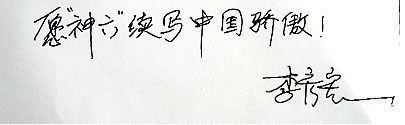 愿“神六”续写中国骄傲！
李彦宏